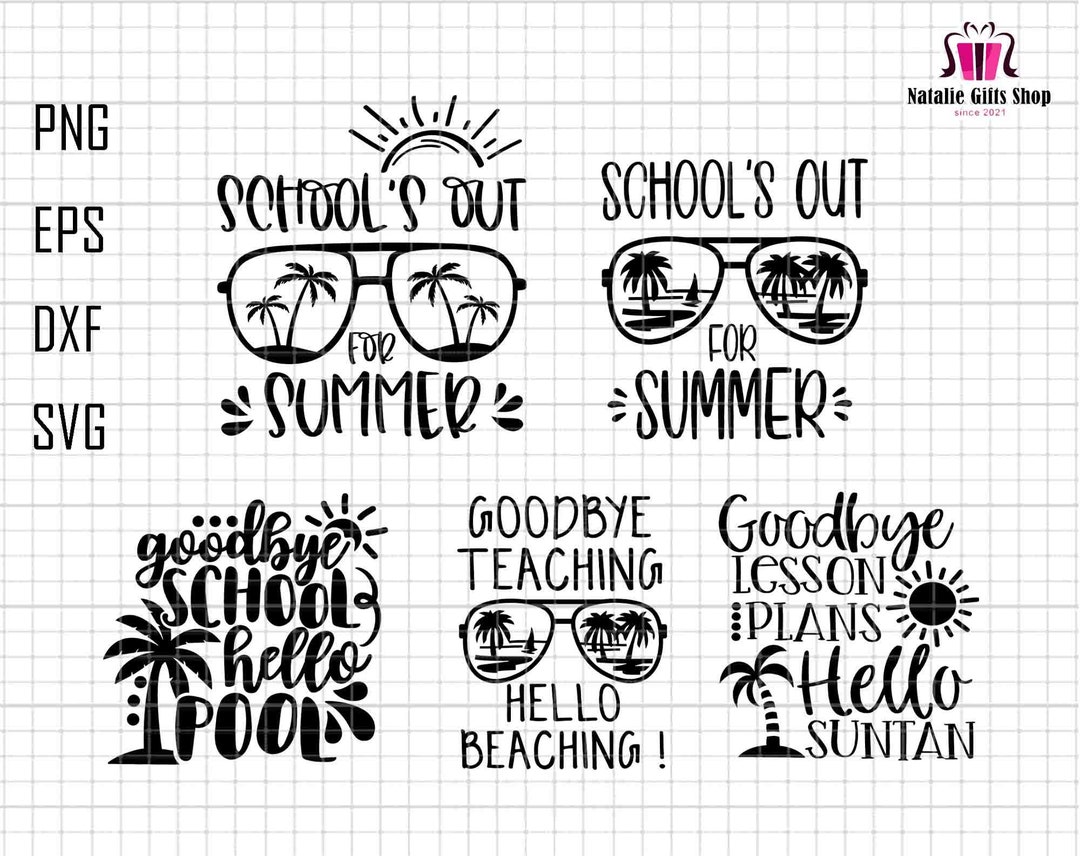 Natalie Gifts Shop
since 2021
PNG
EPS
DXF
SVG
SCHOOL'S OUT
FOR
SUMMER
SCHOOL'S OUT
FOR
SUMMER
goodbye
SCHOOL
hello
POOL
GOODBYE
TEACHING
HELLO
BEACHING !
Goodbye
LESSON
PLANS
Hello
SUNTAN